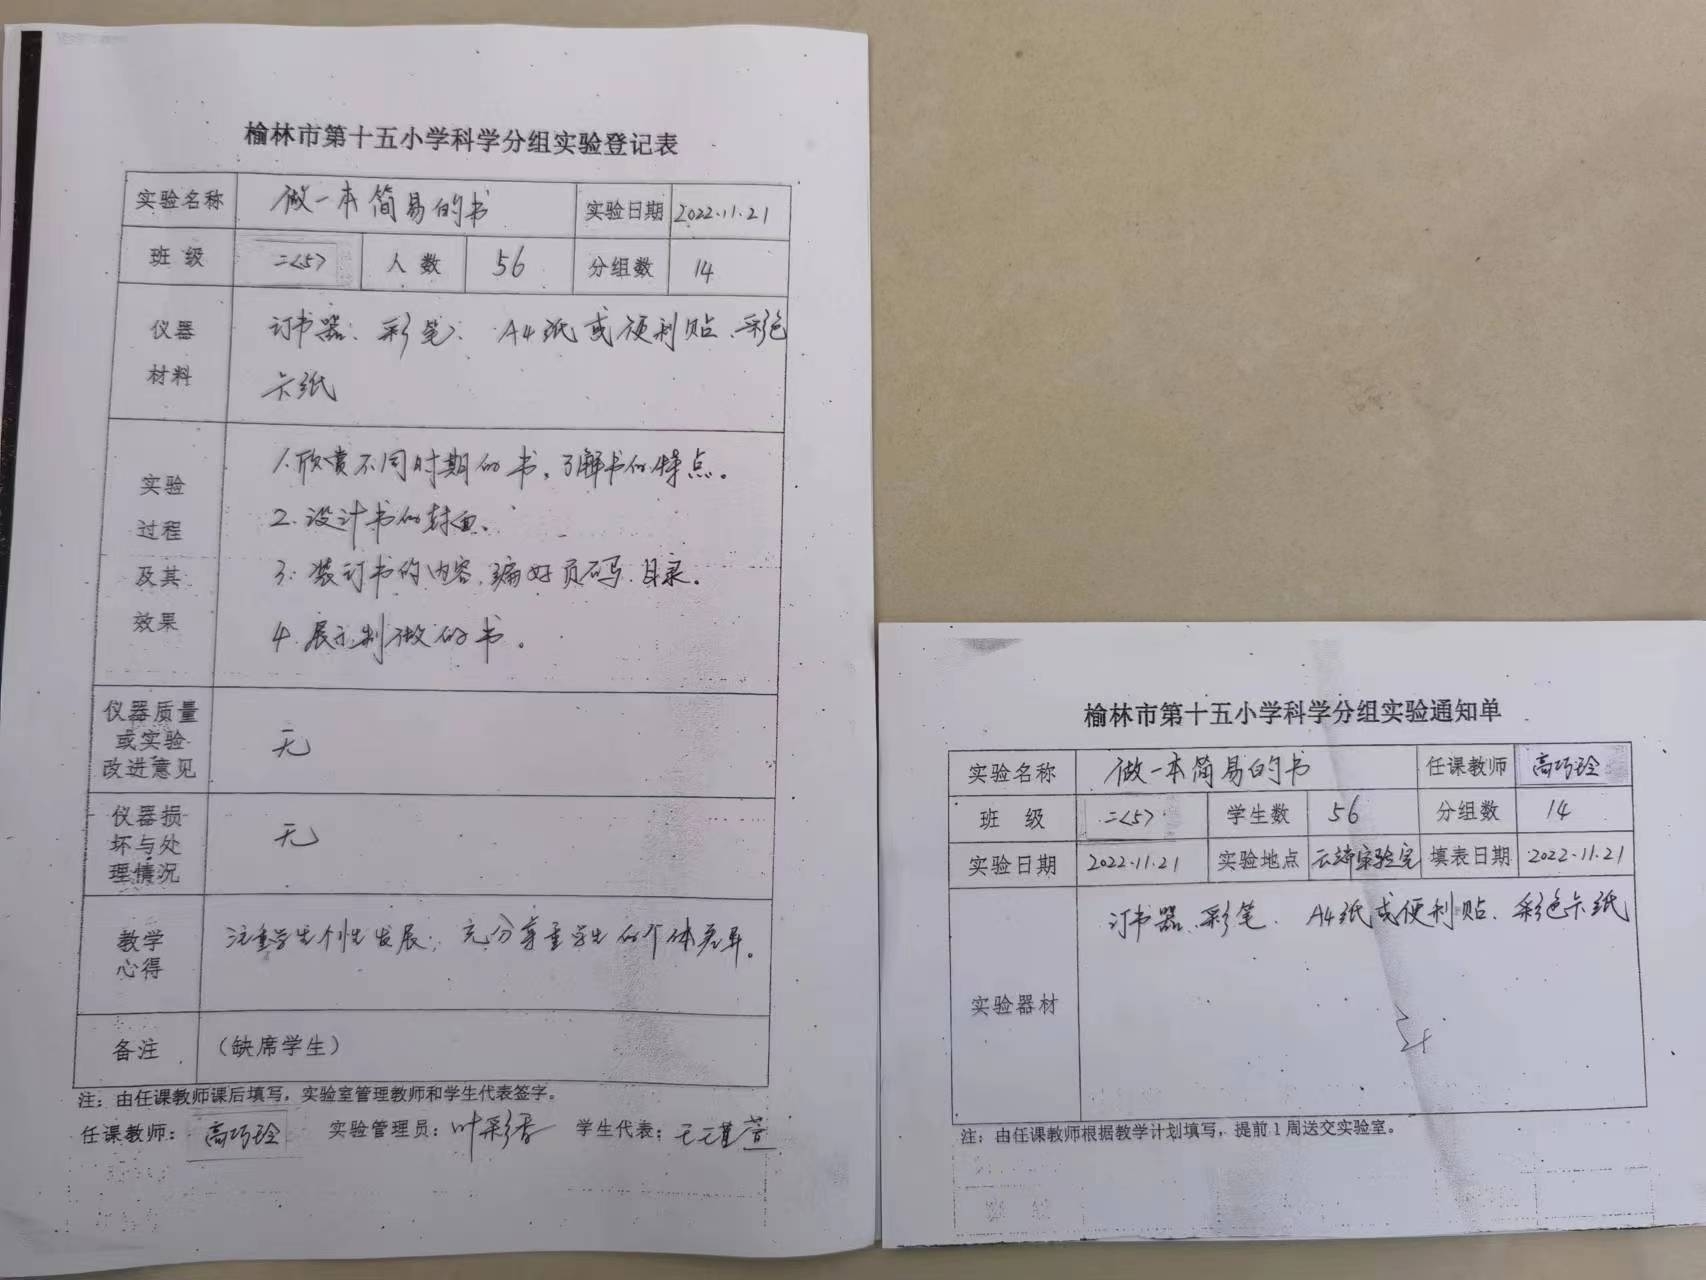 榆林市第十五小学科学分组实验登记表
实验名称 做一本简易的书 实验日期 2022.11.21
班级 二<5> 人数 56 分组数 14
仪器材料 订书器、彩笔、A4纸或便利贴、彩色
卡纸
实验过程及其效果
1.欣赏不同时期的书,了解书的特点。
2.设计书的封面、
3.装订书的内容,编好页码、目录。
4.展示制做的书。
仪器质量或实验改进意见 无
仪器损坏与处理情况 无
教学心得 注重学生个性发展,充分尊重学生的个体差异。
备注 (缺席学生)
注:由任课教师课后填写,实验室管理教师和学生代表签字。
任课教师:高巧玲 实验管理员:叶彩香 学生代表:
榆林市第十五小学科学分组实验通知单
实验名称 做一本简易的书 任课教师 高巧玲
班级 二<5> 学生数 56 分组数 14
实验日期 2022.11.21 实验地点 实验室 填表日期 2022.11.21
实验器材 订书器、彩笔、A4纸或便利贴、彩色卡纸
注:由任课教师根据教学计划填写,提前1周送交实验室。